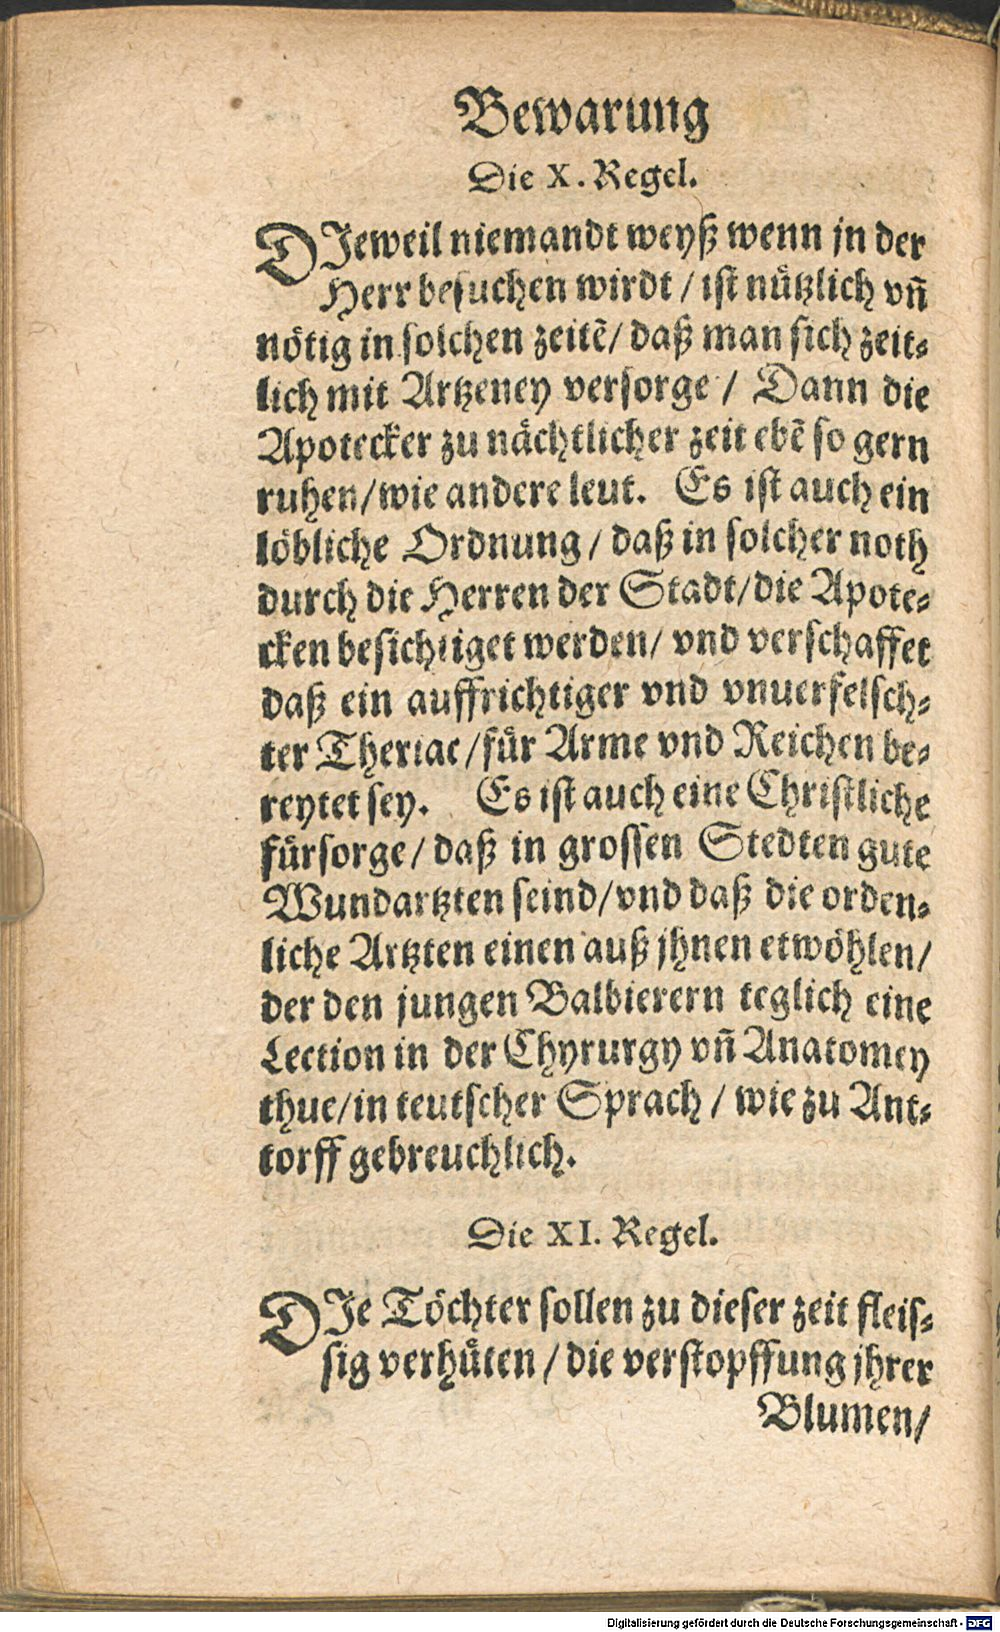 Bewarung
Die X. Regel.
DJeweil niemandt weyß wenn jn der
Herr besuchen wirdt / ist nuͤtzlich vñ
noͤtig in solchen zeitẽ/ daß man sich zeit⸗
lich mit Artzeney versorge / Dann die
Apotecker zu naͤchtlicher zeit ebẽ so gern
ruhen/wie andere leut. Es ist auch ein
loͤbliche Ordnung / daß in solcher noth
durch die Herren der Stadt/die Apote⸗
cken besichtiget werden/ vnd verschaffet
daß ein auffrichtiger vnd vnuerfelsch⸗
ter Theriac /fuͤr Arme vnd Reichen be⸗
reytet sey. Es ist auch eine Christliche
fuͤrsorge/ daß in grossen Stedten gute
Wundartzten seind/vnd daß die orden⸗
liche Artzten einen auß jhnen etwoͤhlen/
der den jungen Balbierern teglich eine
Lection in der Chyrurgy vñ Anatomey
thue/in teutscher Sprach / wie zu Ant⸗
torff gebreuchlich.
Die XI. Regel.
DJe Toͤchter sollen zu dieser zeit fleis⸗
sig verhuͤten / die verstopffung jhrer
Blumen/
Digitalisierung gefördert durch die Deutsche Forschungsgemeinschaft - DFG